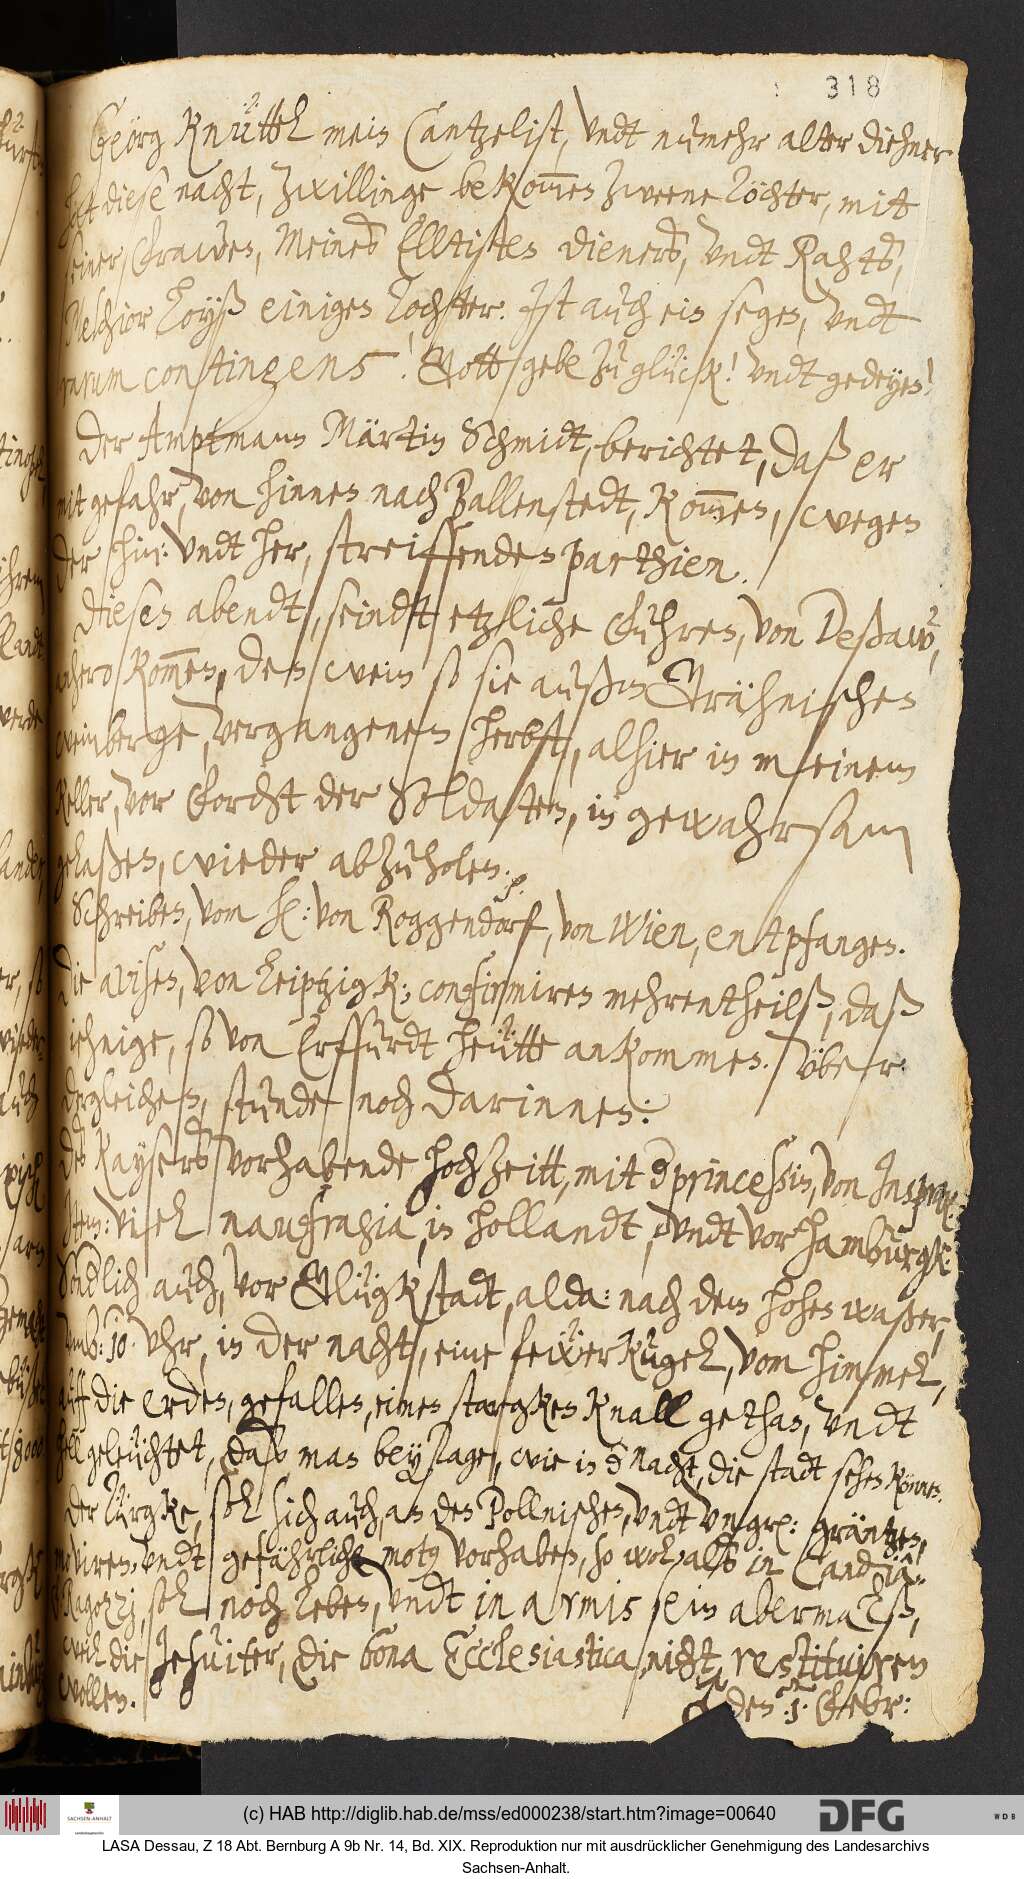 318
Geörg Knüttel mein Cantzelist, undt nuhmehr alter diehner
hat diese nacht, Zwillinge bekommen Zweene Töchter, mit
seiner Frawen, Meines Elltisten dieners, undt Rahts,
Melchior Loyß einigen Tochter. Ist auch ein segen, undt
rarum contingens! Gott gebe zu glück! undt gedeyen!
Der Amptmann Märtin Schmidt, berichtet, daß er
mit gefahr, von hinnen nach Ballenstedt, kommen, wegen
der hin: undt her, streiffenden parthien.
Diesen abendt, seindt etzliche Fuhren, von Deßaw,
anhero kommen, den wein so sie außm Gröhnischen
weinberge, vergangenen herbst, alhier in meinem
Keller, vor Forcht der Soldaten, in gewahrsam
gelaßen, wieder abzuholen. p.
Schreiben, vom H: von Roggendorf, von Wien, entpfangen.
Die avisen, von Leiptzigk; confirmiren mehrentheilß, daß
iehnige, so von Erffurdt heütte ankommen. Vber:
dergleichen, stunde noch darinnen:
Des Kaysers vorhabende hochzeitt, mit d princessin, von Insprugk
Item: viel naufragia, in Hollandt, undt vor Hamburgk:
Endlich auch, vor Glügkstadt, alda: nach dem hohen waßer,
umb: 10. Uhr, in der nacht, eine feẅerkugel, vom himmel,
auff die erden, gefallen, einen stargken knall gethan, undt
hell geleuchtet, daß man bey Tage, wie in d nacht, die stadt sehen können.
Der Türgke, sol sich auch, an den Pollnischen, undt Ungr: gräntzen,
moviren, undt gefährliche motus vorhaben, so wol, alß in Candia:
Ragozzj, sol noch leben, undt in armis sein abermalß,
weil die Jesuiter, die bona Ecclesiastica, nicht, restituiren
wollen.
den .1. Febr:
(c) HAB http://diglib.hab.de/mss/ed000238/start.htm?image=00640
SACHSEN-ANHALT
DFG
WDB
LASA Dessau, Z 18 Abt. Bernburg A 9b Nr. 14, Bd. XIX. Reproduktion nur mit ausdrücklicher Genehmigung des Landesarchivs
Sachsen-Anhalt.